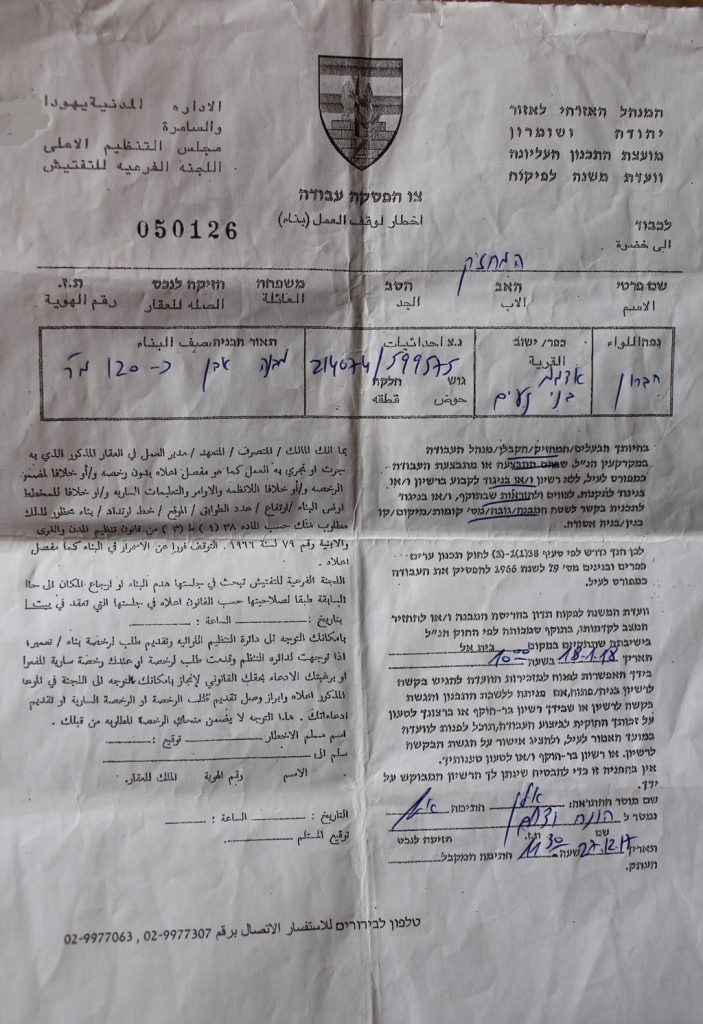 המנהל האזרחי לאזור
יהודה ושומרון
מועצת התכנון העליונה
וועדת משנה לפיקוח
الاداره المدنية يهودا
والسامرة
مجلس التنظيم الاعلى
اللجنه الفرعيه للتفتيش
צו הפסקת עבודה
اخطار لوقف العمل (بناء)
050126
לכבוד
الى حضرة
המחזיק
שם פרטי האב הסב משפחה הזיקה לנכס ת.ז.
الاسم الاب الجد العائلة الصله للعقار رقم الهوية
נפה/לואה כפר/ ישוב נ.צ احداثيات תאור הבניה/صيف البناء
القرية
חברון בני נעים 214074/599575 מבנה אבן כ- 120 מ"ר
גוש חלקה
حوض قطعه
בהיותך הבעלים/המחזיק/הקבלן/מנהל העבודה
במקרקעין הנ"ל, שבהם התבצעה או מתבצעת העבודה
כמפורט לעיל, ללא רשיון ו/או בניגוד לקבוע ברשיון ו/או
בניגוד לתקנות, לצווים ולהוראות שבתוקף, ו/או בניגוד
לתכנית בקשר לשטח המבנה/גובה/מס' קומות/מיקום/קו
בנין/בניה אסורה.
לכן הנך נדרש לפי סעיף 38(1)(2-3) לחוק תכנון ערים
כפרים ובנינים מס' 79 לשנת 1966 להפסיק את העבודה
כמפורט לעיל.
וועדת המשנה לפקוח תדון בהריסת המבנה ו/או להחזיר
המצב לקדמותו, בתוקף סמכותה לפי החוק הנ"ל
בישיבתה שתתקיים במקום בית אל
תאריך 18.1.18 בשעה 10:00
בידך האפשרות לפנות למזכירות הוועדה להגיש בקשה
לרשיון בניה/פתוח, אם פניתה ללשכת התכנון והגשת
בקשה לרשיון או שבידך רשיון בר-תוקף או ברצונך לטעון
על זכותך החוקית לביצוע העבודה, תוכל לפנות לוועדה
במועד האמור לעיל, ולהציג אישור על הגשת הבקשה
לרשיון, או רשיון בר-תוקף ו/או לטעון טענותיך.
אין בהפניה זו כדי להבטיח שינתן לך הרשיון המבוקש על
ידך.
שם מוסר ההתראה: אלון חתימה
נמסר ל הונח
שם ת.ז. הזיקה לנכס
תאריך 27.12.17 שעה 11:30 חתימת המקבל
העתק.
بما انك المالك / المتصرف / المتعهد / مدير العمل في العقار المذكور الذي به
جرت او تجري به العمل كما هو مفصل اعلاه بدون رخصه و/أو خلافا لمضمون
الرخصه و/أو خلافا للانظمه والاوامر والتعليمات الساريه و/او خلافا للمخطط
اوض البناء /ارتفاع / عدد الطوابق / الموقع / خط ارتداد / بناء محظور لذلك
مطلوب منك حسب الماده ٣٨ (١) ط (٣) من قانون تنظيم المدن والقرى
والابنية رقم ٧٩ لسنة ١٩٦٦ التوقف فورا عن الاستمرار في البناء كما مفصل
اعلاه .
اللجنة الفرعية للتفتيش تبحث في جلستها هدم البناء او ارجاع المكان الى حالا
السابقة طبقا لصلاحيتها حسب القانون اعلاه في جلستها التي تعقد في
بتاريخ : الساعة :
بامكانك التوجه الى دائرة التنظيم اللوائيه وتقديم طلب لرخصة بناء / تعمير؛
اذا توجهت لدائره التنظم وقدمت طلب لرخصة او عندك رخصة سارية المفعول
او برغبتك الادعاء بحقك القانوني لإنجاز بامكانك بالتوجه الى اللجنة في
المذكور اعلاه وابراز وصل تقديم طلب الرخصة او الرخصة السارية او تقديم
ادعاءاتك . هذا التوجه لا يضمن منحك الرخصة المطلوبه من قبلك .
اسم مسلم الاخطار توقيع :
سلم الى
الاسم رقم الهوية المالك للعقار.
التاريخ : الساعة :
توقيع المستلم
טלפון לבירורים للاستفسار الاتصال برقم 02-9977307 , 02-9977063